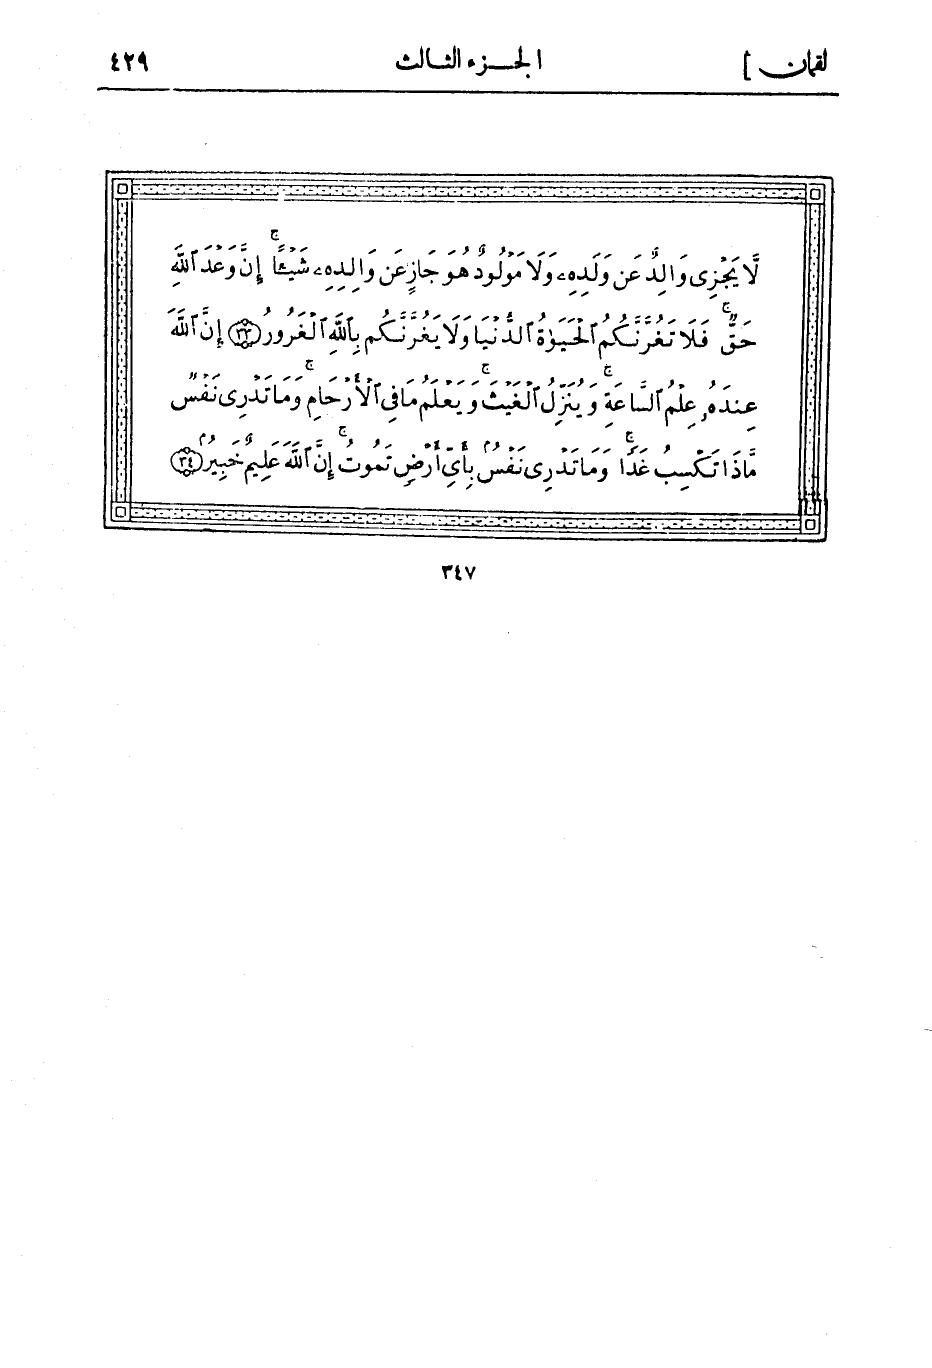 لقمان ]
الجـــزء الثـالث
٤٢٩
لَّا يَجْزِى وَالِدٌ عَن وَلَدِهِۦ وَلَا مَوْلُودٌ هُوَ جَازٍ عَن وَالِدِهِۦ شَيْـًٔا ۚ إِنَّ وَعْدَ ٱللَّهِ
حَقٌّ ۚ فَلَا تَغُرَّنَّكُمُ ٱلْحَيَوٰةُ ٱلدُّنْيَا وَلَا يَغُرَّنَّكُم بِٱللَّهِ ٱلْغَرُورُ ٣٣ إِنَّ ٱللَّهَ
عِندَهُۥ عِلْمُ ٱلسَّاعَةِ ۚ وَيُنَزِّلُ ٱلْغَيْثَ ۚ وَيَعْلَمُ مَا فِى ٱلْأَرْحَامِ ۚ وَمَا تَدْرِى نَفْسٌ
مَّاذَا تَكْسِبُ غَدًا ۚ وَمَا تَدْرِى نَفْسٌۢ بِأَىِّ أَرْضٍ تَمُوتُ ۚ إِنَّ ٱللَّهَ عَلِيمٌ خَبِيرٌۢ ٣٤
٣٤٧